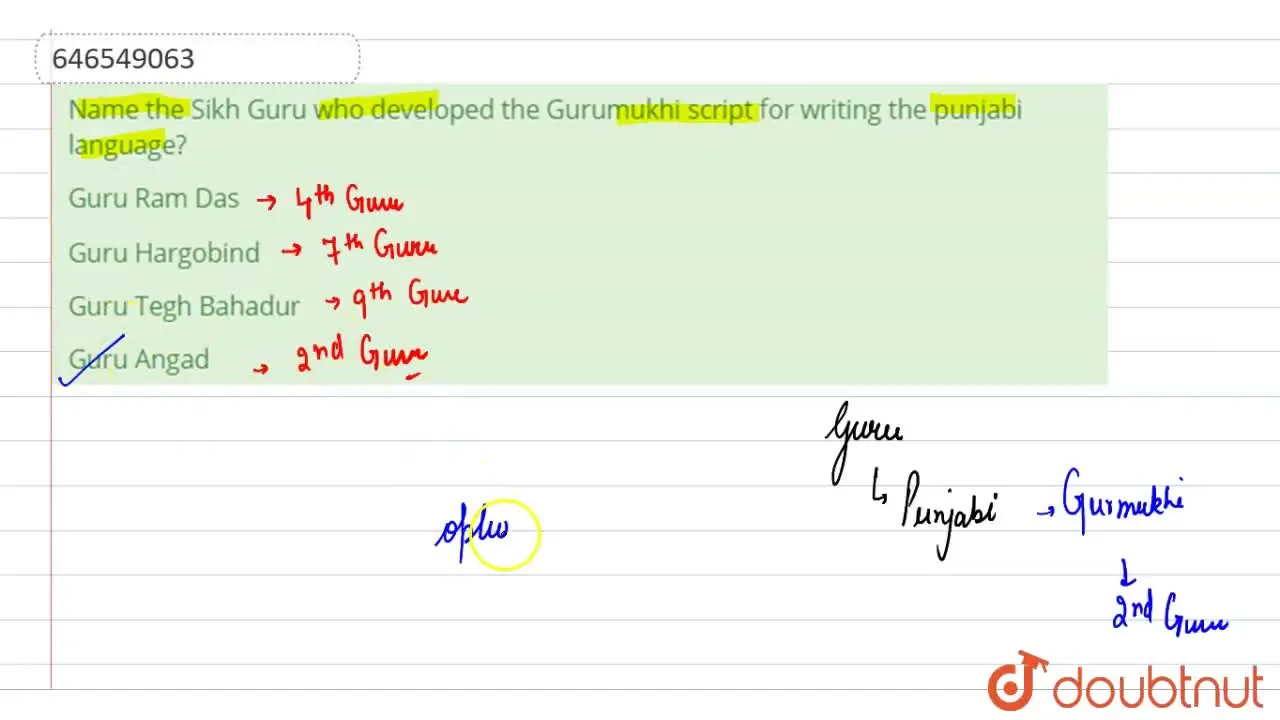 646549063
Name the Sikh Guru who developed the Gurumukhi script for writing the punjabi
language?
Guru Ram Das → 4th Guru
Guru Hargobind → 7th Guru
Guru Tegh Bahadur → 9th Guru
Guru Angad → 2nd Guru
Guru
↳ Punjabi → Gurmukhi
optio
↓
2nd Guru
doubtnut